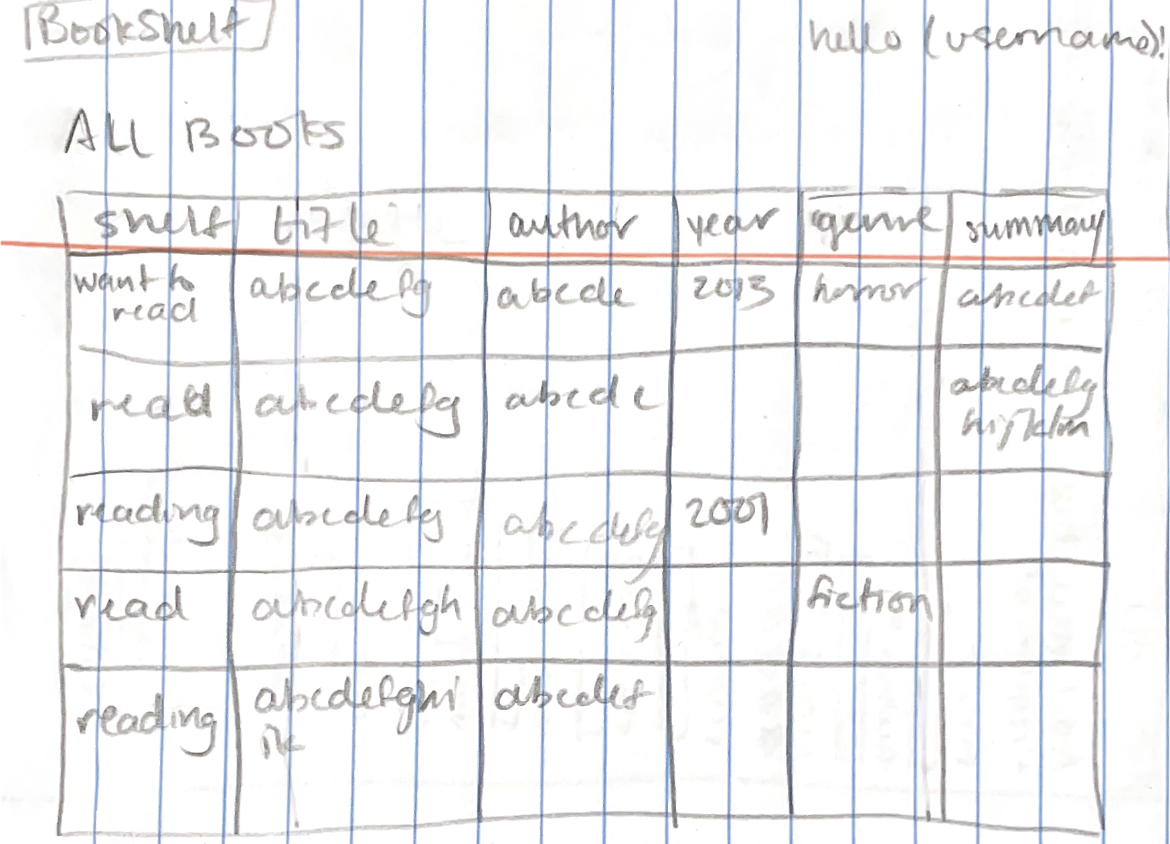 BookShelf
hello (username)!
ALL BOOKS
shelf title author year genre summary
want to abcdefg abcde 2013 horror abcdef
read
read abcdefg abcde abcdefg
hijklm
reading abcdefg abcdefg 2001
read abcdefgh abcdefg fiction
reading abcdefghi abcdef
jk